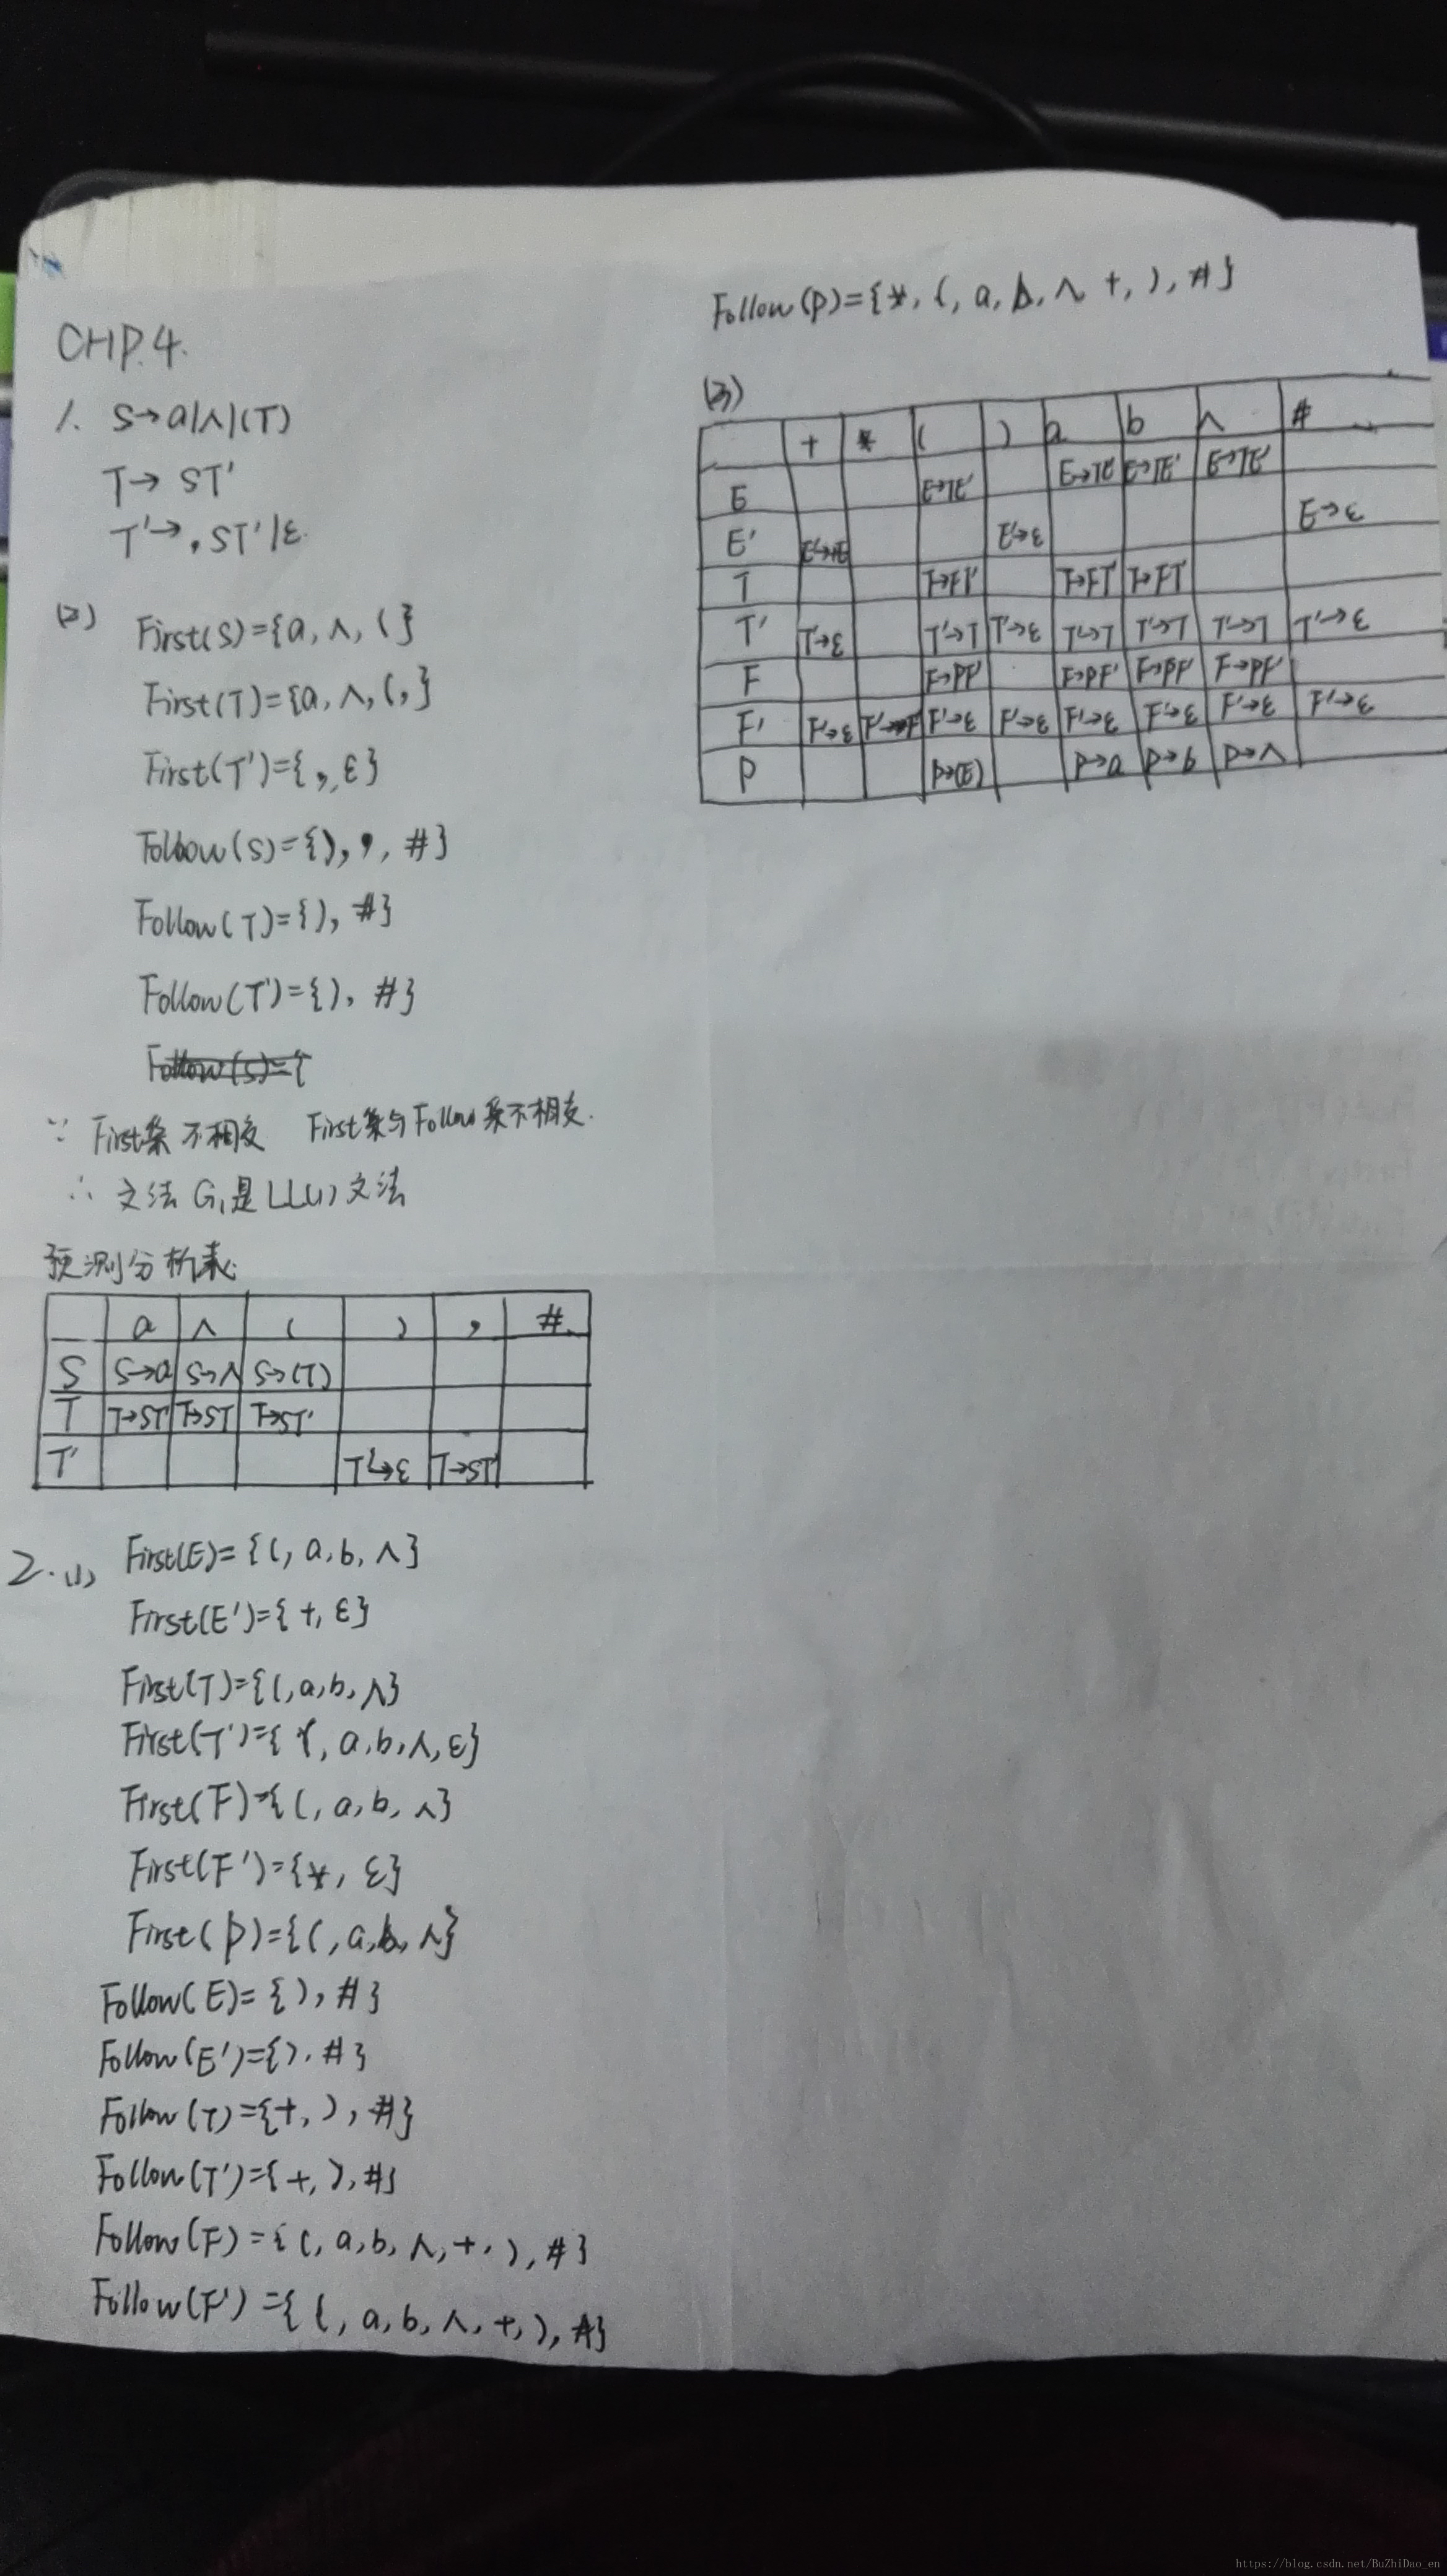 CHP.4.
1. S→a|∧|(T)
T→ ST'
T'→,ST'|ε
(2) First(S)={a,∧,(}
First(T)={a,∧,(,}
First(T')={,,ε}
Follow(S)={),,,#}
Follow(T)={),#}
Follow(T')={),#}
Follow(S)={
∵ First集不相交 First集与Follow集不相交.
∴ 文法G₁是LL(1)文法
预测分析表:
a ∧ ( ) , #
S S→a S→∧ S→(T)
T T→ST' T→ST T→ST'
T' T'→ε T→ST'
2.(1) First(E)={(,a,b,∧}
First(E')={+,ε}
First(T)={(,a,b,∧}
First(T')={(,a,b,∧,ε}
First(F)={(,a,b,∧}
First(F')={*,ε}
First(P)={(,a,b,∧}
Follow(E)={),#}
Follow(E')={).#}
Follow(T)={+,),#}
Follow(T')={+,),#}
Follow(F)={(,a,b,∧,+,),#}
Follow(F')={(,a,b,∧,+,),#}
Follow(P)={*,(,a,b,∧+,),#}
(3)
+ * ( ) a b ∧ #
E E→TE' E→TE' E→TE' E→TE'
E' E'→+E E'→ε E→ε
T T→FT' T→FT' T→FT'
T' T'→ε T'→T T'→ε T'→T T'→T T'→T T'→ε
F F→PF' F→PF' F→PF' F→PF'
F' F'→ε F'→*F' F'→ε F'→ε F'→ε F'→ε F'→ε F'→ε
P P→(E) P→a P→b P→∧
https://blog.csdn.net/BuZhiDao_en